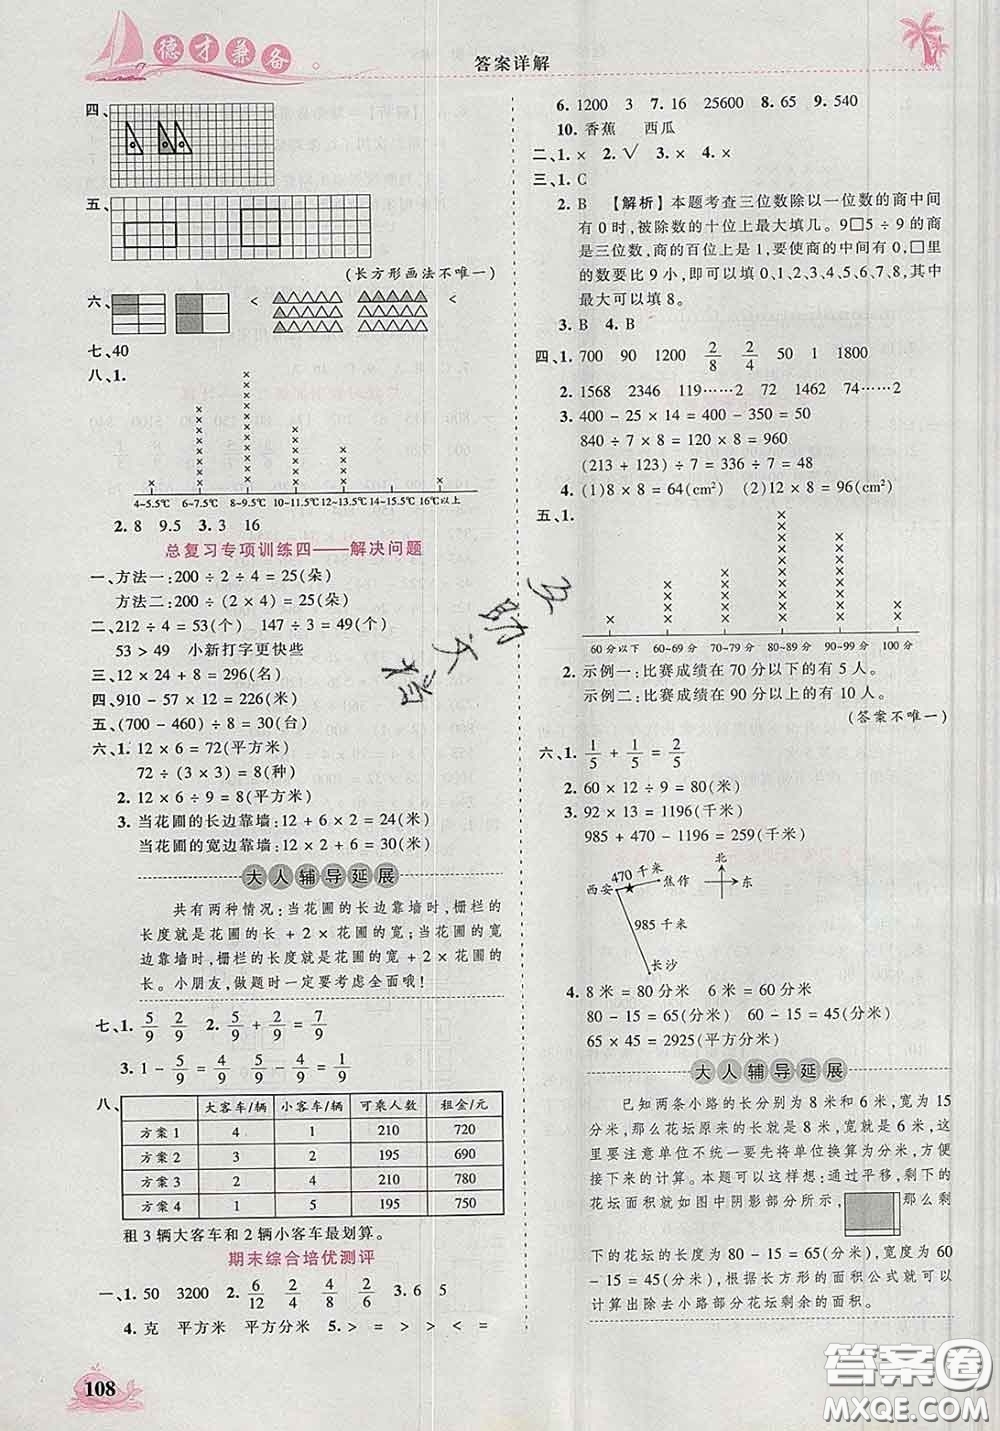 德才兼备
答案详解
四、
五、
(长方形画法不唯一)
六、 < <
七、40
八、1.
4~5.5℃ 6~7.5℃ 8~9.5℃ 10~11.5℃ 12~13.5℃ 14~15.5℃ 16℃以上
2. 8 9.5 3. 3 16
总复习专项训练四——解决问题
一、方法一:200÷2÷4=25(朵)
方法二:200÷(2×4)=25(朵)
二、212÷4=53(个) 147÷3=49(个)
53>49 小新打字更快些
三、12×24+8=296(名)
四、910-57×12=226(米)
五、(700-460)÷8=30(台)
六、1. 12×6=72(平方米)
72÷(3×3)=8(种)
2. 12×6÷9=8(平方米)
3. 当花圃的长边靠墙:12+6×2=24(米)
当花圃的宽边靠墙:12×2+6=30(米)
大人辅导延展
共有两种情况:当花圃的长边靠墙时,栅栏的
长度就是花圃的长+2×花圃的宽;当花圃的宽
边靠墙时,栅栏的长度就是花圃的宽+2×花圃
的长。小朋友,做题时一定要考虑全面哦!
七、1. 5/9 2/9 2. 5/9+2/9=7/9
3. 1-5/9=4/9 5/9-4/9=1/9
八、
大客车/辆 小客车/辆 可乘人数 租金/元
方案1 4 1 210 720
方案2 3 2 195 690
方案3 2 4 210 780
方案4 1 5 195 750
租3辆大客车和2辆小客车最划算。
期末综合培优测评
一、1. 50 3200 2. 6/12 2/4 4/8 2/6 3. 6 5
4. 克 平方米 平方分米 5. > = > > < =
108
6. 1200 3 7. 16 25600 8. 65 9. 540
10. 香蕉 西瓜
二、1. × 2. √ 3. × 4. ×
三、1. C
2. B 【解析】本题考查三位数除以一位数的商中间
有0时,被除数的十位上最大填几。9□5÷9的商
是三位数,商的百位上是1,要使商的中间有0,□里
的数要比9小,即可以填0、1、2、3、4、5、6、7、8,其中
最大可以填8。
3. B 4. B
四、1. 700 90 1200 2/8 2/4 50 1 1800
2. 1568 2346 119……2 720 1452 72……2
3. 400-25×14=400-350=50
840÷7×8=120×8=960
(213+123)÷7=336÷7=48
4. (1)8×8=64(cm²) (2)12×8=96(cm²)
五、1.
60分以下 60~69分 70~79分 80~89分 90~99分 100分
2. 示例一:比赛成绩在70分以下的有5人。
示例二:比赛成绩在90分以上的有10人。
(答案不唯一)
六、1. 1/5+1/5=2/5
2. 60×12÷9=80(米)
3. 92×13=1196(千米)
985+470-1196=259(千米)
470千米 北
西安 焦作 东
985千米
长沙
4. 8米=80分米 6米=60分米
80-15=65(分米) 60-15=45(分米)
65×45=2925(平方分米)
大人辅导延展
已知两条小路的长分别为8米和6米,宽为15
分米,那么花坛原来的长就是8米,宽是6米,这
里要注意单位不统一要先将单位换算为分米,方便
接下来的计算。本题可以这样想:通过平移,剩下的
花坛面积就如图中阴影部分所示, 那么剩
下的花坛的长度为80-15=65(分米),宽度为60
-15=45(分米),根据长方形的面积公式就可以
计算出除去小路部分花坛剩余的面积。
答案圈
MXQE.COM